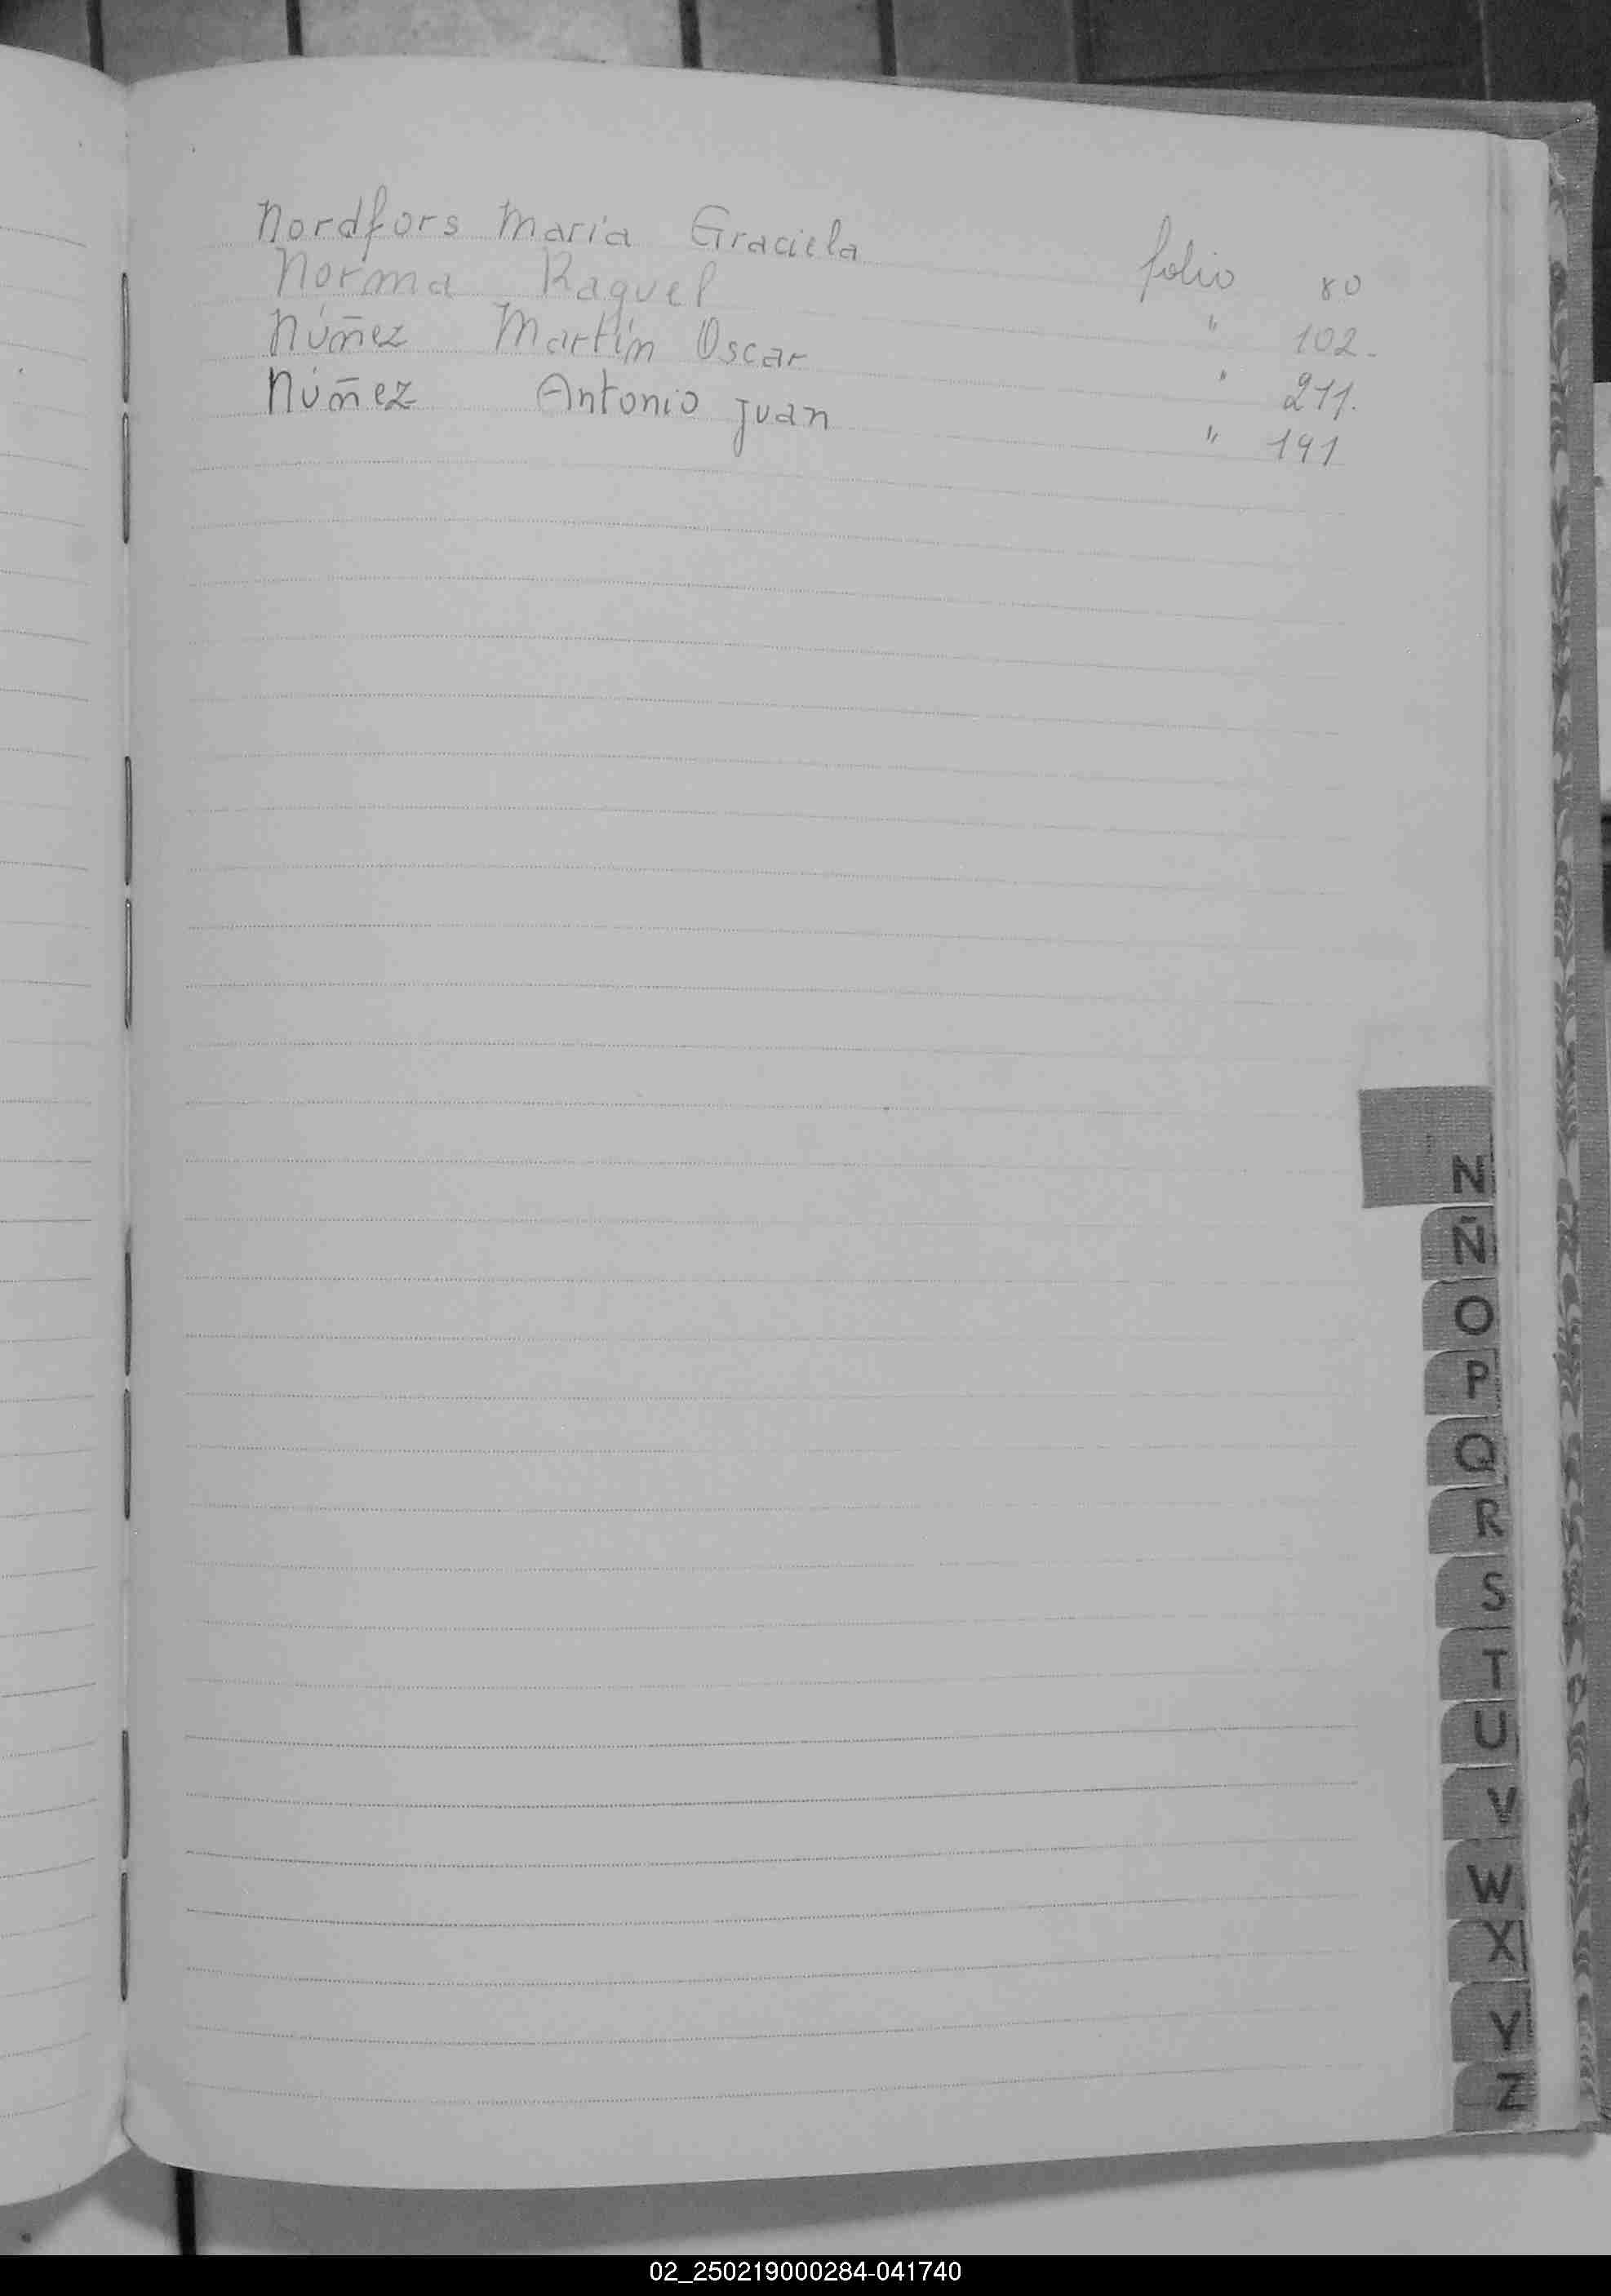 Nordfors María Graciela folio 80
Norma Raquel " 102.
Núñez Martín Oscar " 211.
Núñez Antonio Juan " 191
N
Ñ
O
P
Q
R
S
T
U
V
W
X
Y
Z
02_250219000284-041740